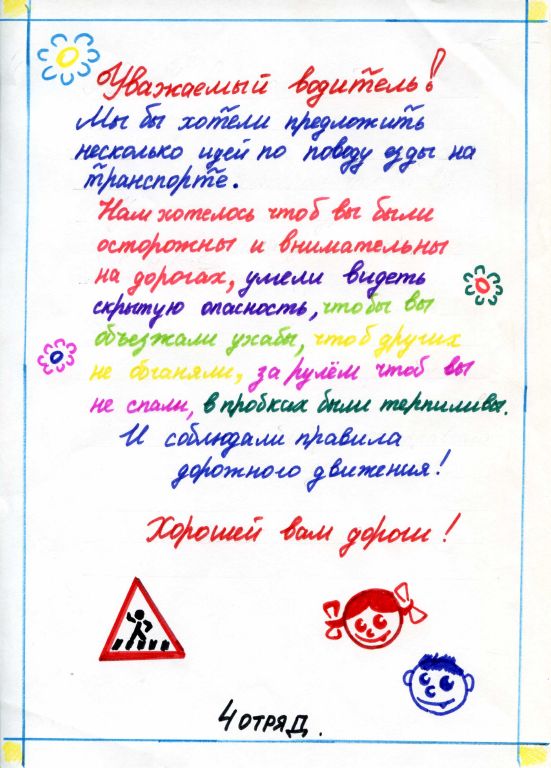 Уважаемый водитель!
Мы бы хотели предложить
несколько идей по поводу езды на
транспорте.
Нам хотелось чтоб вы были
осторожны и внимательны
на дорогах, умели видеть
скрытую опасность, чтобы вы
объезжали ухабы, чтоб других
не обганяли, за рулём чтоб вы
не спали, в пробках были терпиливы.
И соблюдали правила
дорожного движения!
Хорошей вам дороги!
4 отряд.